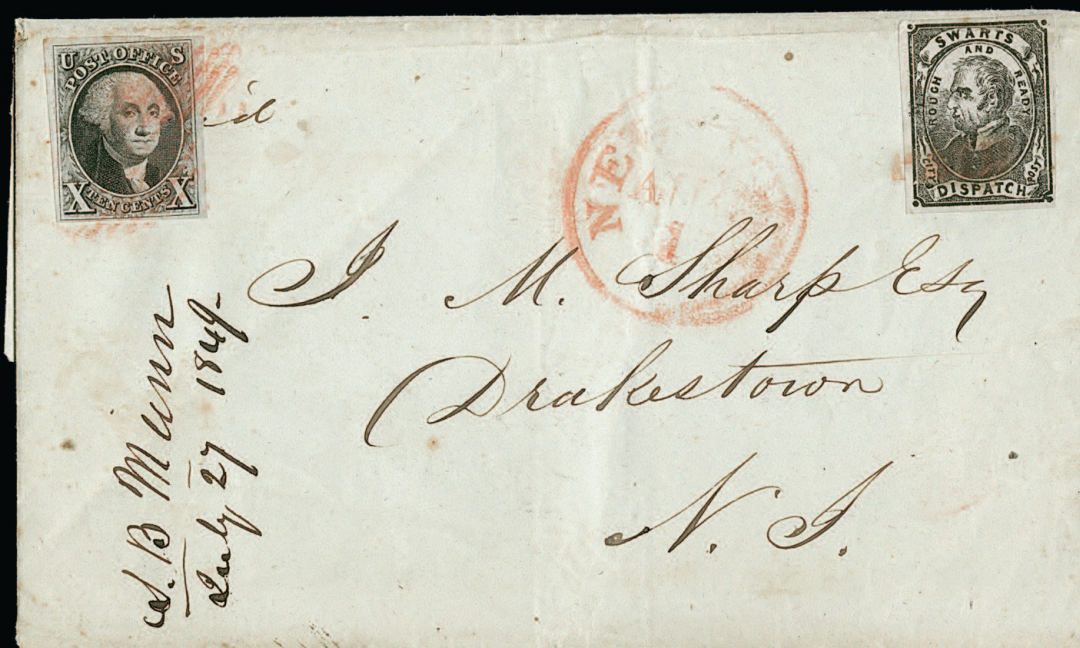 U S
POST OFFICE
X TEN CENTS X
SWARTS
AND
ROUGH READY
CITY POST
DISPATCH
NE
1
J. M. Sharp Esq
Drakestown
N. J.
S. B Munn
July 27 1849